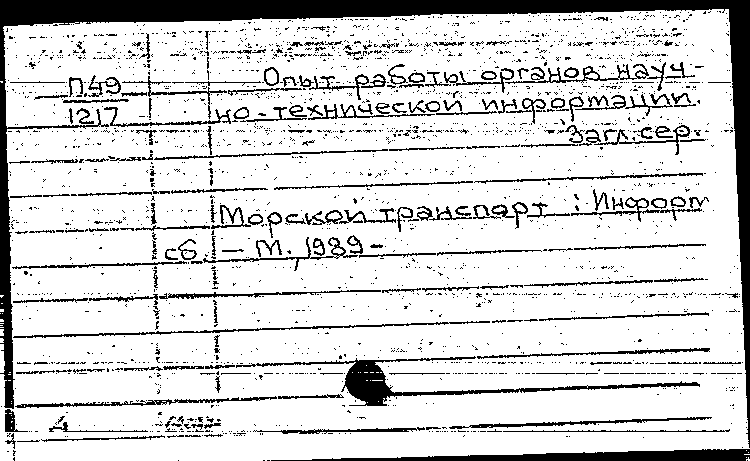 П49
1217
Опыт работы органов науч-
но-технической информации.
Загл. сер.
Морской транспорт : Информ
сб. – М., 1989 –